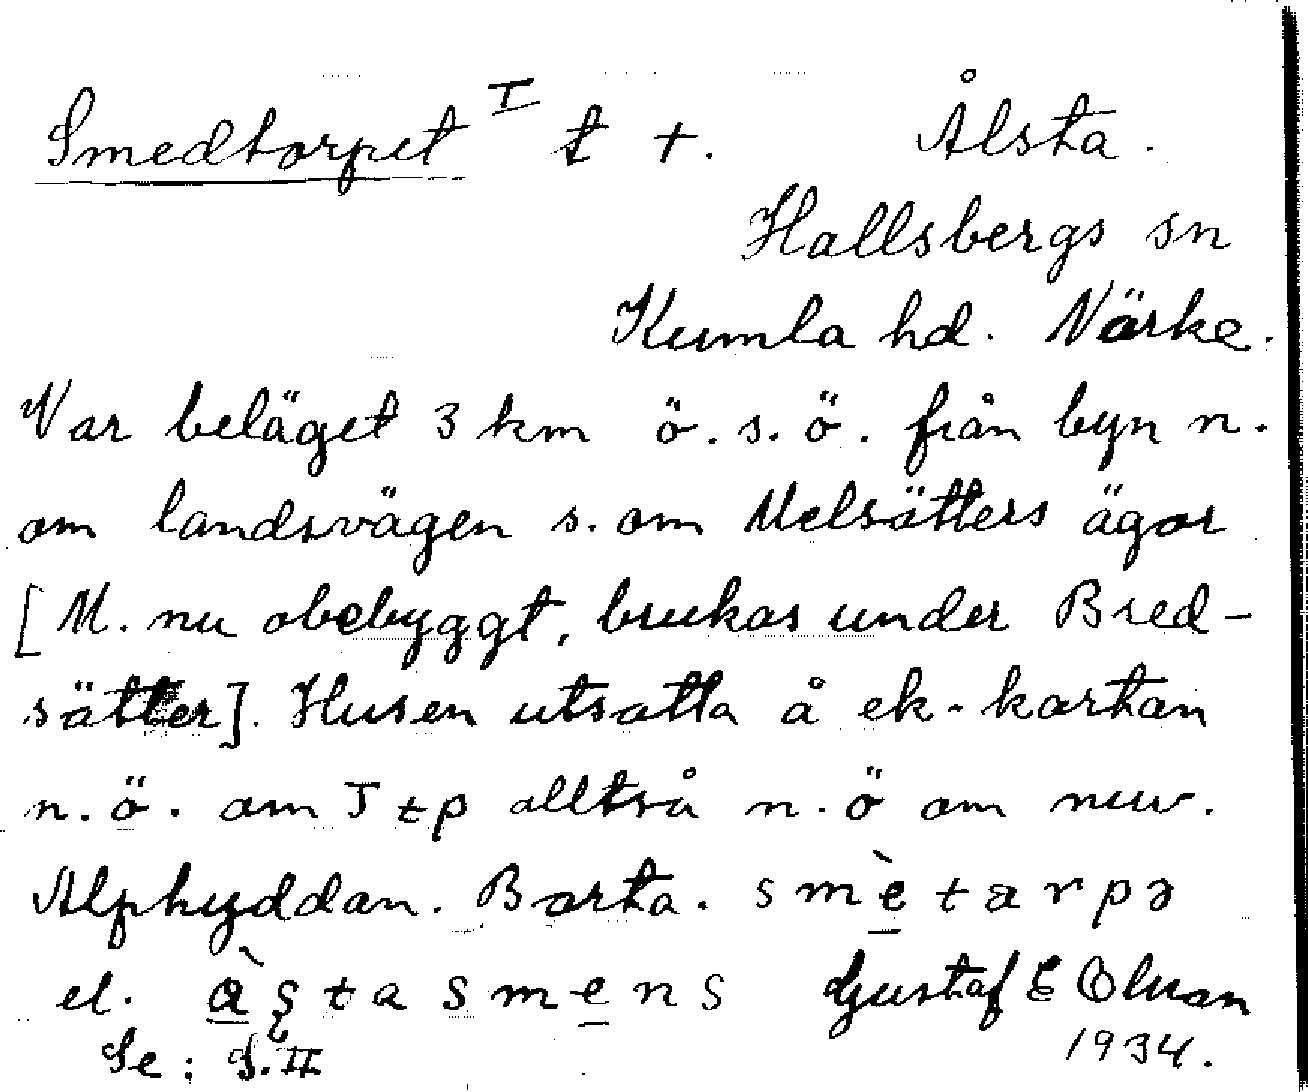 Smedtorpet I t +. Ålsta.
Hallsbergs sn
Kumla hd. Närke.
Var beläget 3 km ö.s.ö. från byn n.
om landsvägen s. om Melsätters ägor
[M. nu obebyggt, brukas under Bred-
sätter]. Husen utsatta å ek-kartan
n.ö. om J tp alltså n.ö om nuv.
Alphyddan. Borta. smètarpə
el. àʂtasmens Gustaf E Olman
Se: S.II 1934.